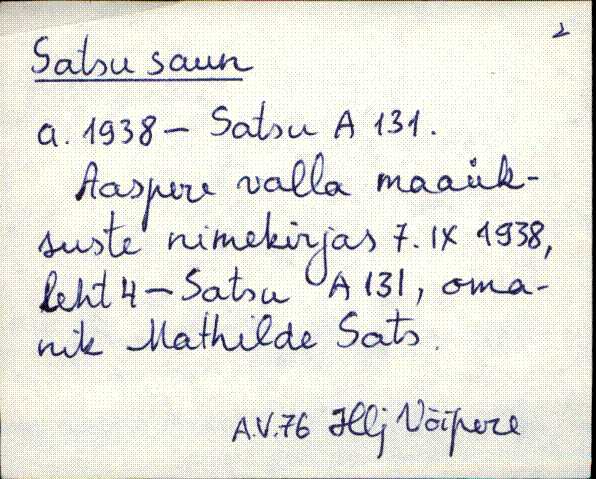 2
Satsu saun
a. 1938 – Satsu A 131.
Aaspere valla maaük-
suste nimekirjas 7. IX 1938,
leht 4 – Satsu A 131, oma-
nik Mathilde Sats.
A.V.76 Hlj Võipere